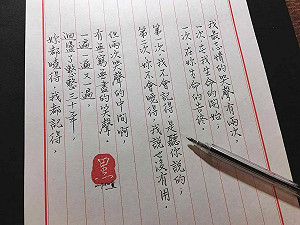 我最忘情的哭聲有兩次，
一次 在我生命的開始，
一次 在妳生命的告終。
第一次 我不會記得，是聽你說的，
第二次 妳不會曉得 我說也沒有用。
但兩次哭聲的中間啊，
有無窮無盡的笑聲。
一遍一遍又一遍，
迴盪了整整三十年，
妳都曉得，我都記得。